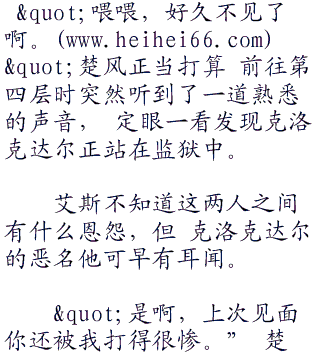 &quot;喂喂，好久不见了
啊。(www.heihei66.com)
&quot;楚风正当打算 前往第
四层时突然听到了一道熟悉
的声音， 定眼一看发现克洛
克达尔正站在监狱中。
艾斯不知道这两人之间
有什么恩怨，但 克洛克达尔
的恶名他可早有耳闻。
&quot;是啊，上次见面
你还被我打得很惨。” 楚